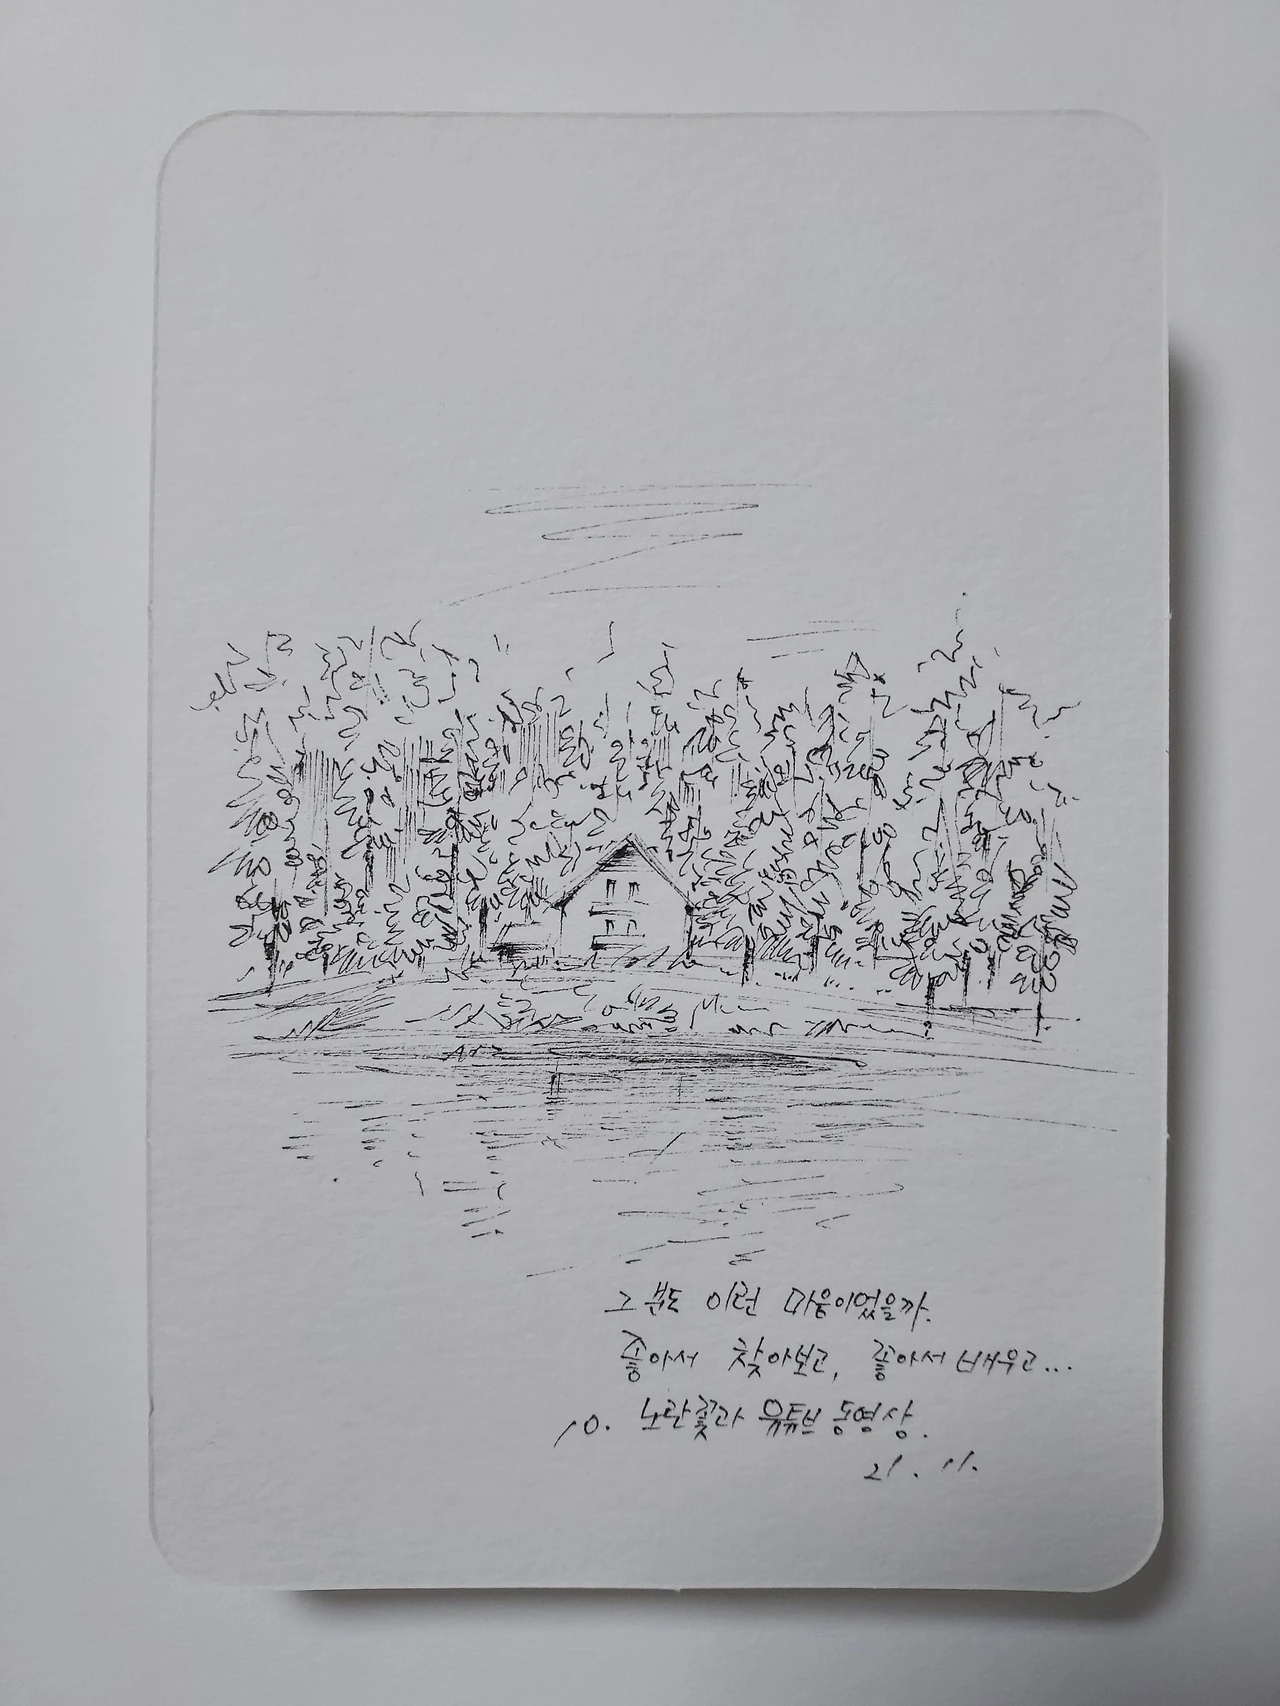 그 분도 이런 마음이었을까.
좋아서 찾아보고, 좋아서 배우고...
10. 노란꽃과 유튜브 동영상.
21. 11.